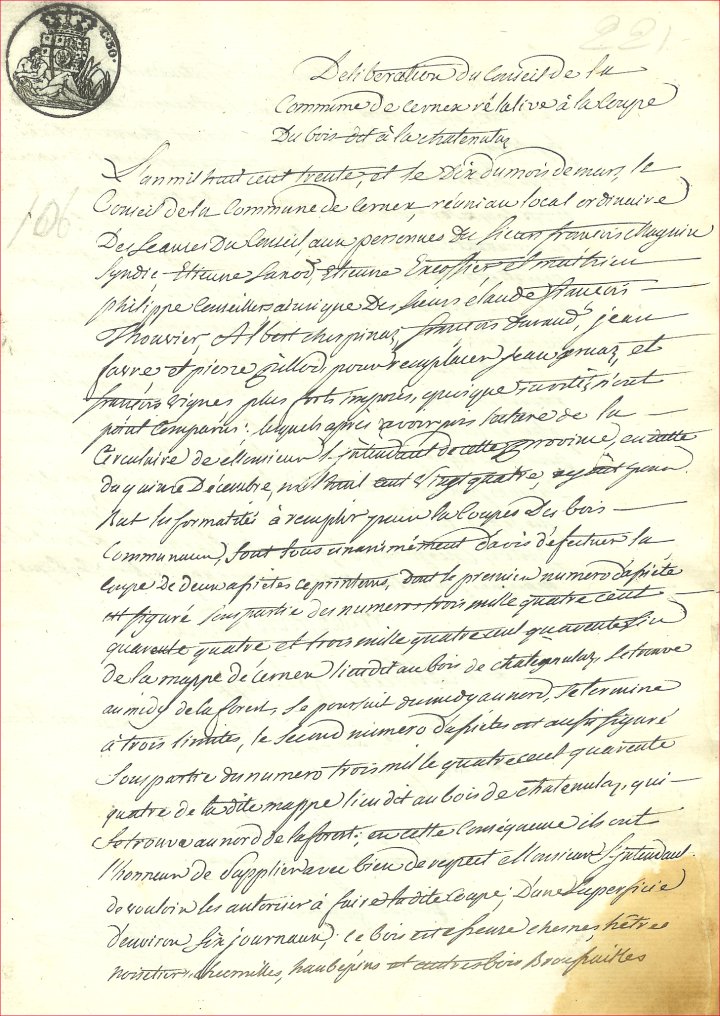 C. 50.
221
106
Deliberation du Conseil de la
Commune de Cernex rélative à la Coupe
Du bois dit à la chatenulaz
L'an mil huit cent trente, et le Dix du mois de mars, le
Conseil de la Commune de Cernex, réuni au local ordinaire
Des Seances Du Conseil aux personnes du Sieur françois Magnin
Syndic, Etienne Etienne Excoffier et mathieu
philippe Conseillers ainsi que Des sieurs claude françois
Thouvier, Albert chespinaz, françois durand, jean
favre et pierre pour remplacer jean et
françois vignes plus forts imposés, quoique invités n'ont
point Comparus; lequels après avoir pris lecture de la
Circulaire de Monsieur L'intendant de cette province, en datte
du quinze Décembre, mil huit cent vingt quatre,
les formalités à remplir pour la Coupes Des bois
Communaux, sont tous unanimément d'avis d'éfectuer la
Coupe De deux assietes ce printems, dont le premier numero d'assiete
est figuré sous partie des numeros trois mille quatre cent
quarente quatre et trois mille quatre cent quarente six
de la mappe de Cernex lieu dit au bois de chatenulaz, se trouve
au midy de la forest, se poursuit du midy au nord, se termine
à trois limites, le second numero d'assietes est aussi figuré
Sous partie du numero trois mille quatre cent quarente
quatre de la dite mappe lieu dit au bois de chatenulaz, qui
se trouve au nord de la forest; en cette Conséquence ils ont
l'honneur de Supplier avec bien de respect Monsieur L'intendant
de vouloir les autoriser à faire la dite Coupe, D'une superficie
d'environ six journaux, ce bois est chesnes, hêtres
noisetiers, charmilles, haubépins et autres bois Brousailles